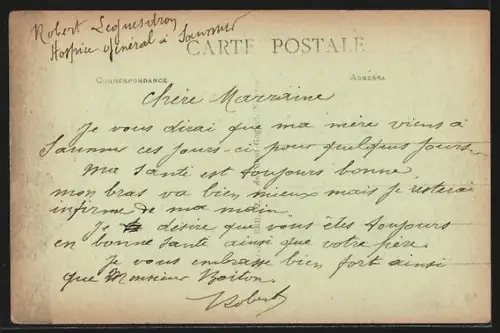 Robert Lequesdron
Hospice Général à Saumur
CARTE POSTALE
CORRESPONDANCE
ADRESSE
Chère Marraine
Je vous dirai que ma mère viens à
Saumur ces jours-ci pour quelques jours.
Ma santé est toujours bonne
mon bras va bien mieux mais je resterai
infirme de ma main.
Je désire que vous êtes toujours
en bonne santé ainsi que votre père.
Je vous embrasse bien fort ainsi
que Monsieur Boiton.
Robert